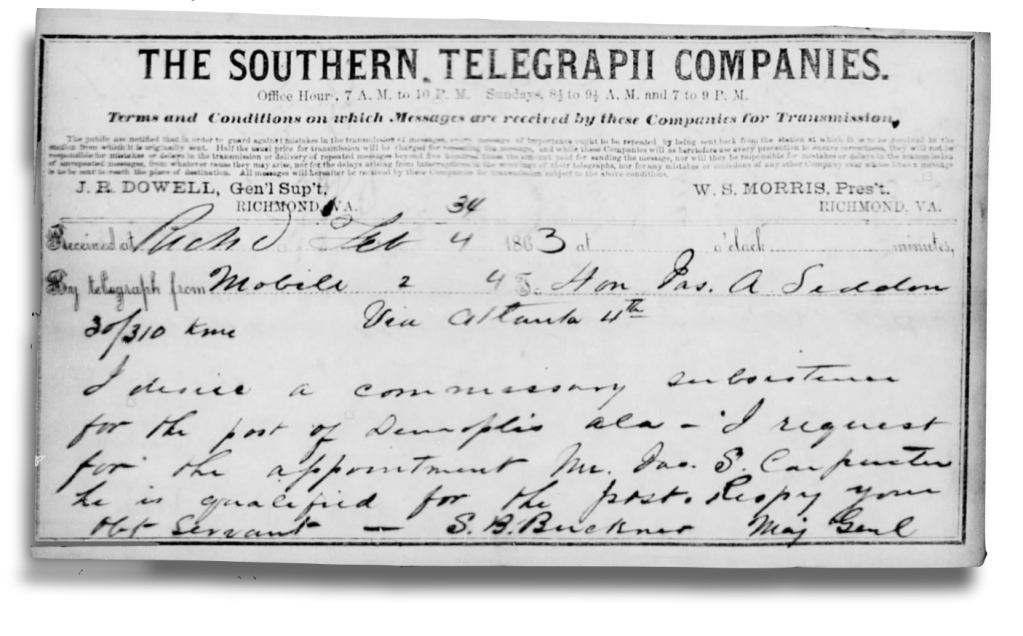 THE SOUTHERN TELEGRAPH COMPANIES.
Office Hours, 7 A. M. to 10 P. M. Sundays, 8½ to 9½ A. M. and 7 to 9 P. M.
Terms and Conditions on which Messages are received by these Companies for Transmission.
The public are notified that in order to guard against mistakes in the transmission of messages, every message of importance ought to be repeated by being sent back from the station at which it is to be received to the
station from which it is originally sent. Half the usual price for transmission will be charged for repeating the message, and while these Companies will as heretofore use every precaution to ensure correctness, they will not be
responsible for mistakes or delays in the transmission or delivery of repeated messages beyond five hundred times the amount paid for sending the message, nor will they be responsible for mistakes or delays in the transmission
of unrepeated messages, from whatever cause they may arise, nor for delays arising from interruptions in the workings of their telegraphs, nor for any mistakes or omissions of any other Company over whose lines a message
is to be sent to reach the place of destination. All messages will hereafter be received by these Companies for transmission subject to the above conditions.
J. R. DOWELL, Gen'l Sup't,
W. S. MORRIS, Pres't.
RICHMOND, VA.
RICHMOND, VA.
34
Received at Richd Feb 4 1863 at o'clock minutes,
By telegraph from Mobile 2 4 To Hon Jas. A Seddon
30/310 Via Atlanta 4th
I desire a commissary subsistence
for the post of Demoplis ala - I request
for the appointment Mr. Jas. S. Carpenter
he is qualified for the post. Respy your
Obt Servant — S. B. Buckner Maj Genl